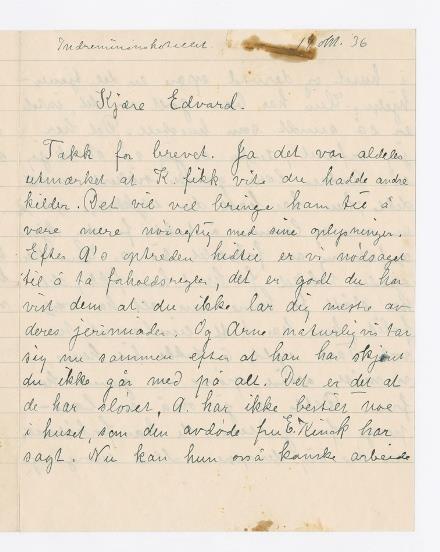 Indremisjonshotellet 19 okt. 36
Kjære Edvard.
Takk for brevet. Ja det var aldeles
utmærket at K. fikk vite du hadde andre
kilder. Det vil vel bringe ham til å
være mere nøiagtig med sine oplysninger.
Efter A's optreden hidtil er vi nødsaget
til å ta foholdsregler, det er godt du har
vist dem at du ikke lar dig mestre av
deres jerimiader. Og Arne naturligvis tar
sig nu sammen efter at han har skjønt
du ikke går med på alt. Det er det at
de har sløset, A. har ikke bestilt noe
i huset, som den avdøde fru E. Kinck har
sagt. Nu kan hun også kanske arbeide